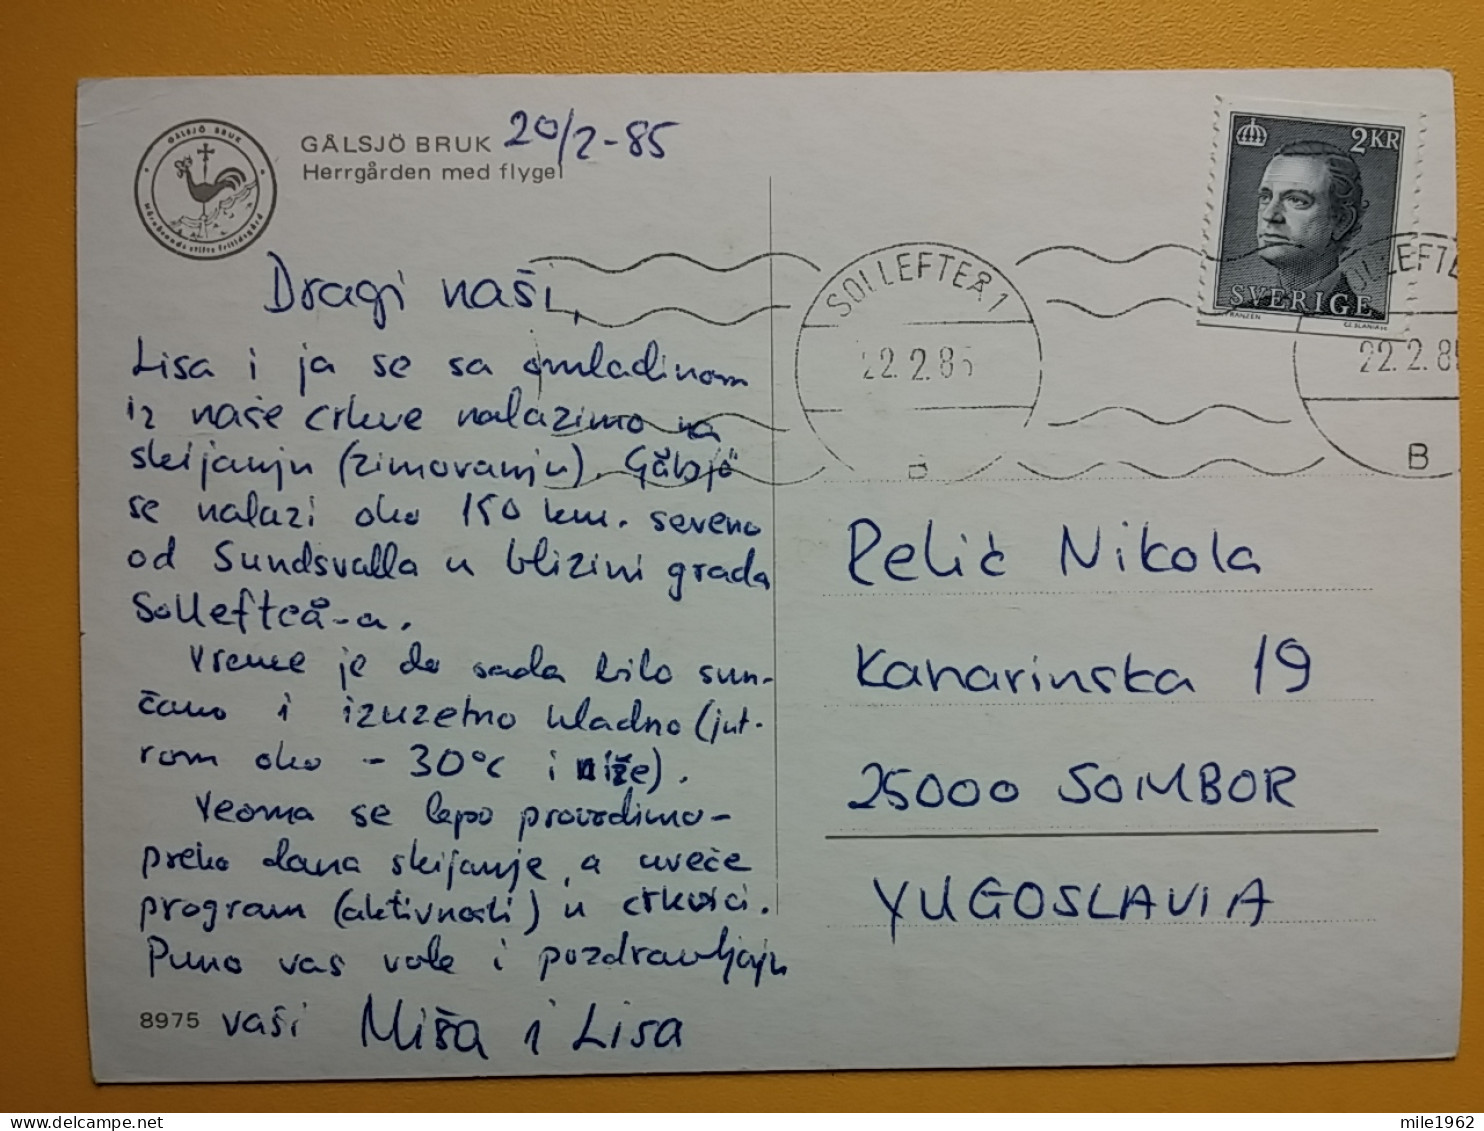 GÅLSJÖ BRUK
HÄRNÖSANDS STIFTS FRITIDSGÅRD
GÅLSJÖ BRUK 20/2-85
Herrgården med flygel
Dragi naši,
Lisa i ja se sa omladinom
iz naše crkve nalazimo na
skijanju (zimovanju). Gålsjö
se nalazi oko 150 km. severno
od Sundsvalla u blizini grada
Sollefteå-a.
Vreme je do sada bilo sun-
čano i izuzetno hladno (jut-
rom oko -30°C i niže).
Veoma se lepo provodimo -
preko dana skijanje, a uveče
program (aktivnosti) u crkvici.
Puno vas vole i pozdravljaju
8975 vaši Miša i Lisa
2 KR
SVERIGE
FRANZEN CZ.SLANIA SC
SOLLEFTEÅ 1
22.2.85
B
SOLLEFTE
22.2.85
B
Pelić Nikola
Kanarinska 19
25000 SOMBOR
YUGOSLAVIA
mile1962